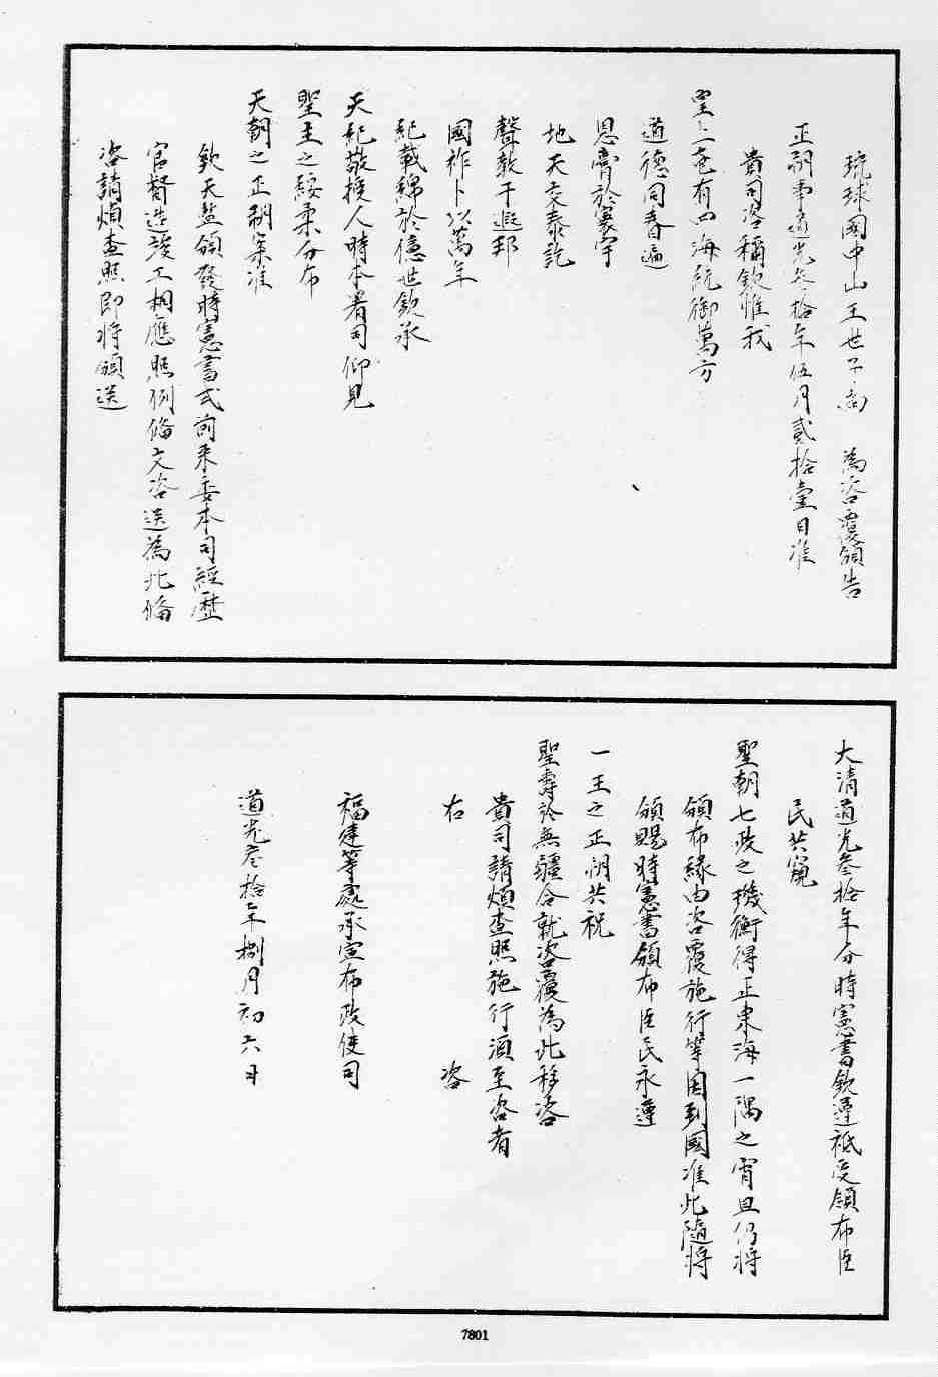 琉球國中山王世子尚　為咨覆頒告
正朔事道光叁拾年伍月貳拾壹日准
貴司咨稱欽惟我
皇上奄有四海統御萬方
道德同春遍
恩膏於寰宇
地天交泰訖
聲敎于遐邦
國祚卜以萬年
紀載綿於億世欽承
天紀敬授人時本署司仰見
聖主之綏柔分布
天朝之正朔案准
欽天監頒發時憲書式前來委本司經歷
官督造竣工相應照例俻文咨送為此俻
咨請煩查照即將頒送
大清道光叁拾年分時憲書欽遵祗受頒布臣
民共窺
聖朝七政之機衡得正東海一隅之宵旦仍將
頒布緣由咨覆施行等因到國准此隨將
頒賜時憲書頒布臣民永遵
一王之正朔共祝
聖壽於無疆合就咨覆為此移咨
貴司請煩查照施行須至咨者
右　咨
福建等處承宣布政使司
道光叁拾年捌月初六日
7801